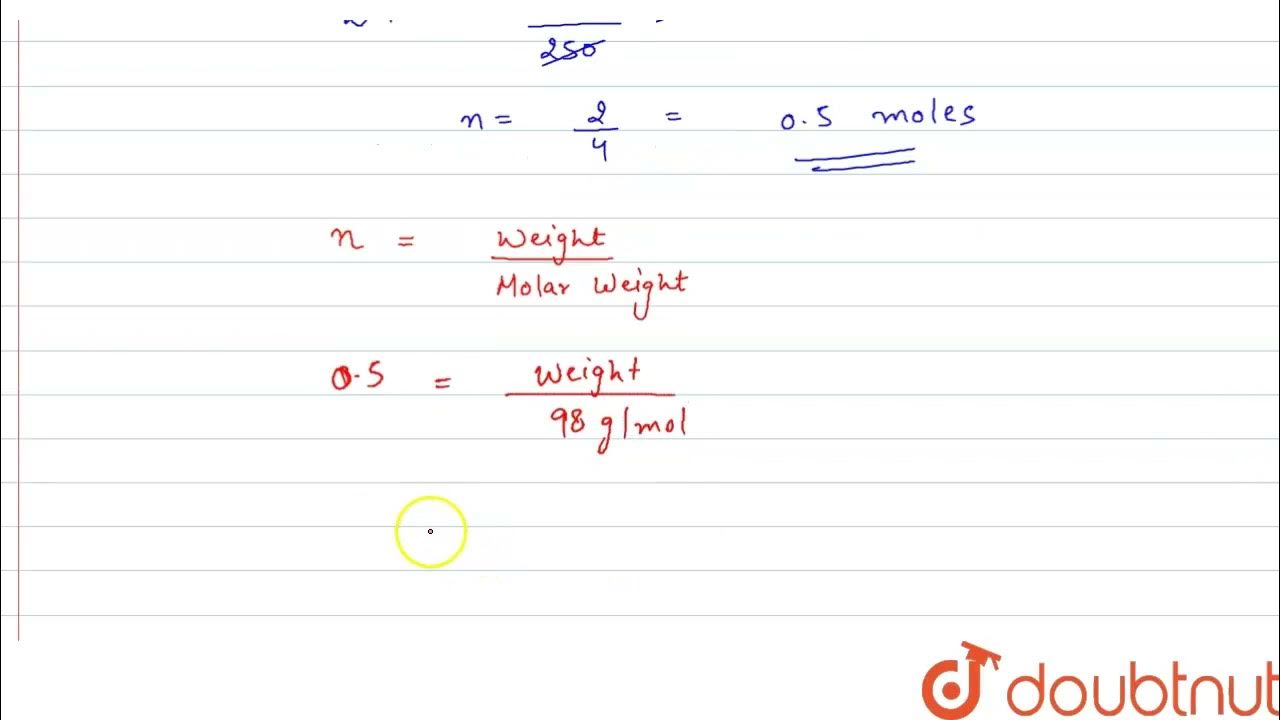 250
n = 2/4 = 0.5 moles
n = Weight / Molar Weight
0.5 = Weight / 98 g/mol
doubtnut